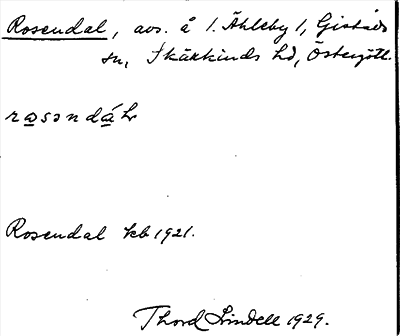 Rosendal, avs. å 1. Åhleby 1, Gistads
sn, Skärkinds hd, Östergötl.
Rosendal kb 1921.
Thord Lindell 1929.